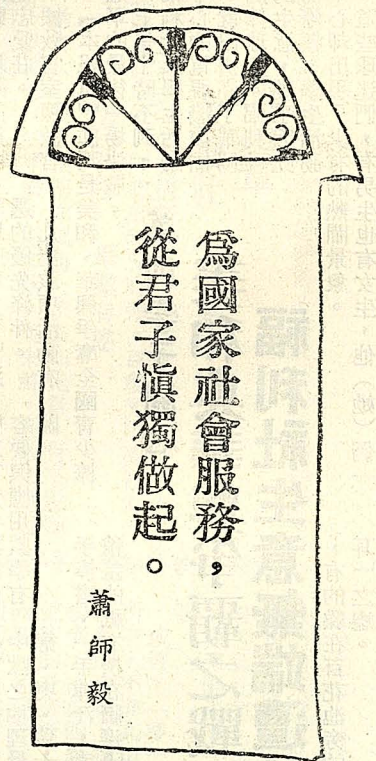 爲國家社會服務，
從君子慎獨做起。
蕭師毅